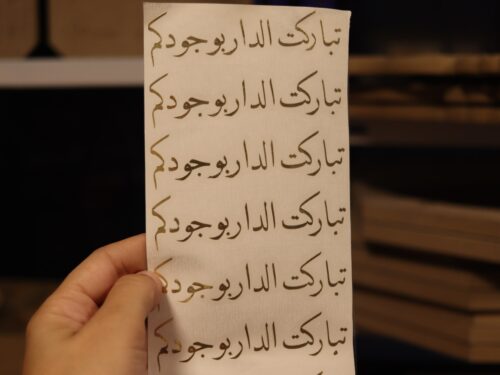 تباركت الدار بوجودكم
تباركت الدار بوجودكم
تباركت الدار بوجودكم
تباركت الدار بوجودكم
تباركت الدار بوجودكم
تباركت الدار بوجودكم